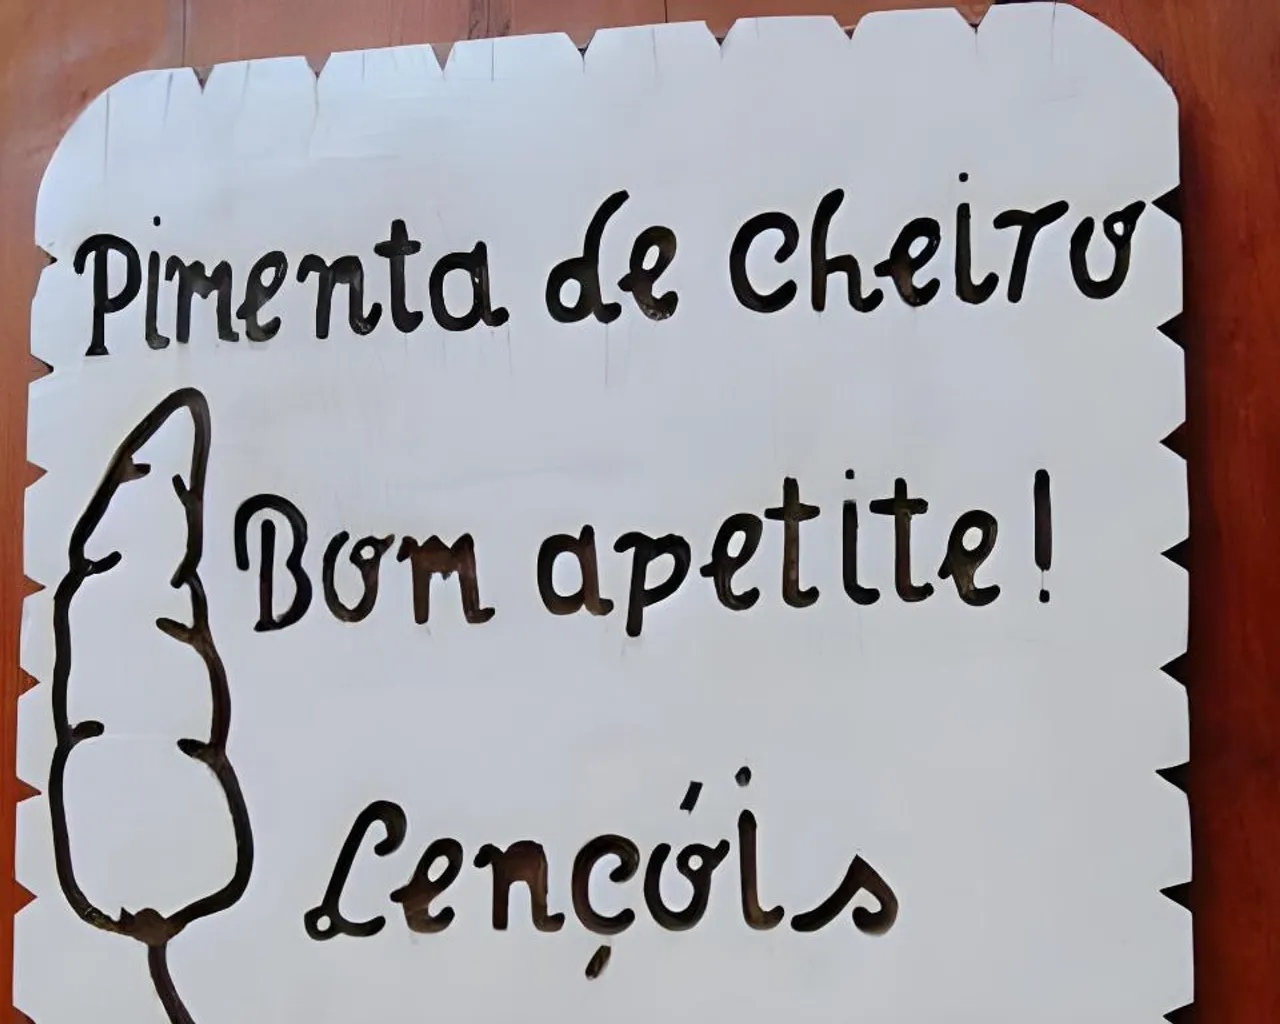 Pimenta de Cheiro
Bom apetite!
Lençóis